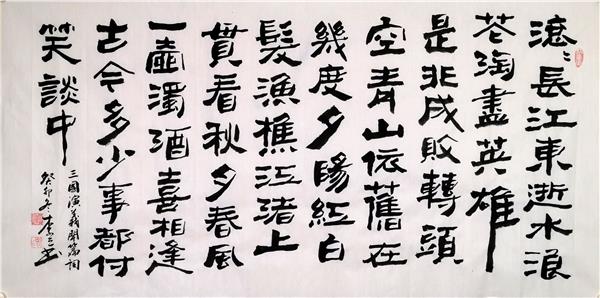 滚〻長江東逝水浪
花淘盡英雄
是非成敗轉頭
空青山依舊在
幾度夕陽紅白
髮漁樵江渚上
貫看秋夕春風
一壺濁酒喜相逢
古今多少事都付
笑談中
三國演義開篇詞
癸卯冬李書